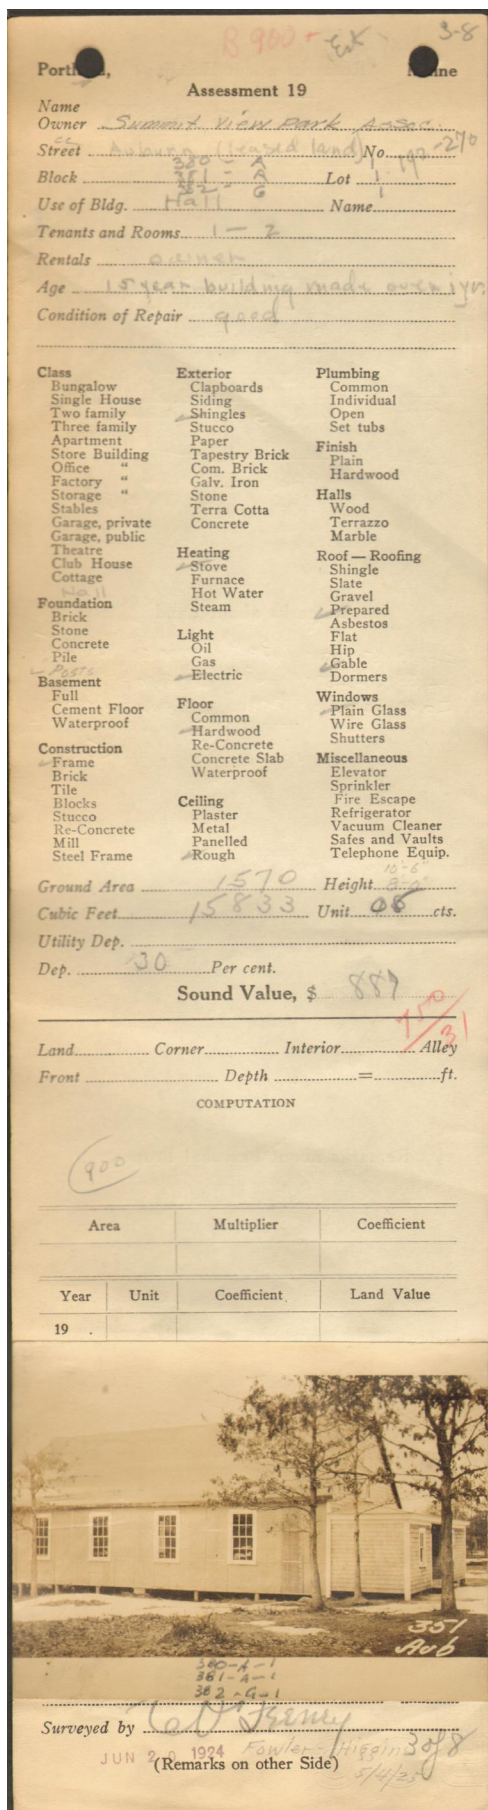 B 900 + Est
3-8
Portland, Maine
Assessment 19
Name
Owner Summit View Park Assoc.
Street Auburn (leased land) No 192-270
Block 380 - A Lot 1
381 - A 1
382 - G 1
Use of Bldg. Hall Name
Tenants and Rooms 1 - 2
Rentals owner
Age 15 year building made over 1 yr.
Condition of Repair good
Class
Bungalow
Single House
Two family
Three family
Apartment
Store Building
Office "
Factory "
Storage "
Stables
Garage, private
Garage, public
Theatre
Club House
Cottage
Hall
Foundation
Brick
Stone
Concrete
Pile
✓ Posts
Basement
Full
Cement Floor
Waterproof
Construction
✓ Frame
Brick
Tile
Blocks
Stucco
Re-Concrete
Mill
Steel Frame
Exterior
Clapboards
Siding
✓ Shingles
Stucco
Paper
Tapestry Brick
Com. Brick
Galv. Iron
Stone
Terra Cotta
Concrete
Heating
✓ Stove
Furnace
Hot Water
Steam
Light
Oil
Gas
✓ Electric
Floor
Common
✓ Hardwood
Re-Concrete
Concrete Slab
Waterproof
Ceiling
Plaster
Metal
Panelled
✓ Rough
Plumbing
Common
Individual
Open
Set tubs
Finish
Plain
Hardwood
Halls
Wood
Terrazzo
Marble
Roof — Roofing
Shingle
Slate
Gravel
✓ Prepared
Asbestos
Flat
Hip
✓ Gable
Dormers
Windows
✓ Plain Glass
Wire Glass
Shutters
Miscellaneous
Elevator
Sprinkler
Fire Escape
Refrigerator
Vacuum Cleaner
Safes and Vaults
Telephone Equip.
10-6"
Ground Area 1570 Height 8-0"
Cubic Feet 15833 Unit 08 cts.
Utility Dep.
Dep. 30 Per cent.
Sound Value, $ 887
750/31
Land Corner Interior Alley
Front Depth = ft.
COMPUTATION
900
Area Multiplier Coefficient
Year Unit Coefficient Land Value
19 .
351
Aub
380-A-1
381-A-1
382-G-1
Surveyed by
JUN 20 1924 Fowler - Higgins 3 of 8
(Remarks on other Side) 5/4/25